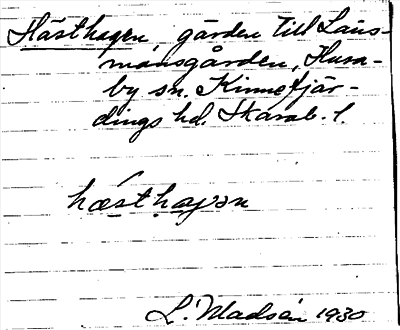 Hästhagen, gärden till Läns-
mansgården, Husa-
by sn. Kinnefjär-
dings hd. Skarab. l.
hæsthaɣən
L. Madsén 1930